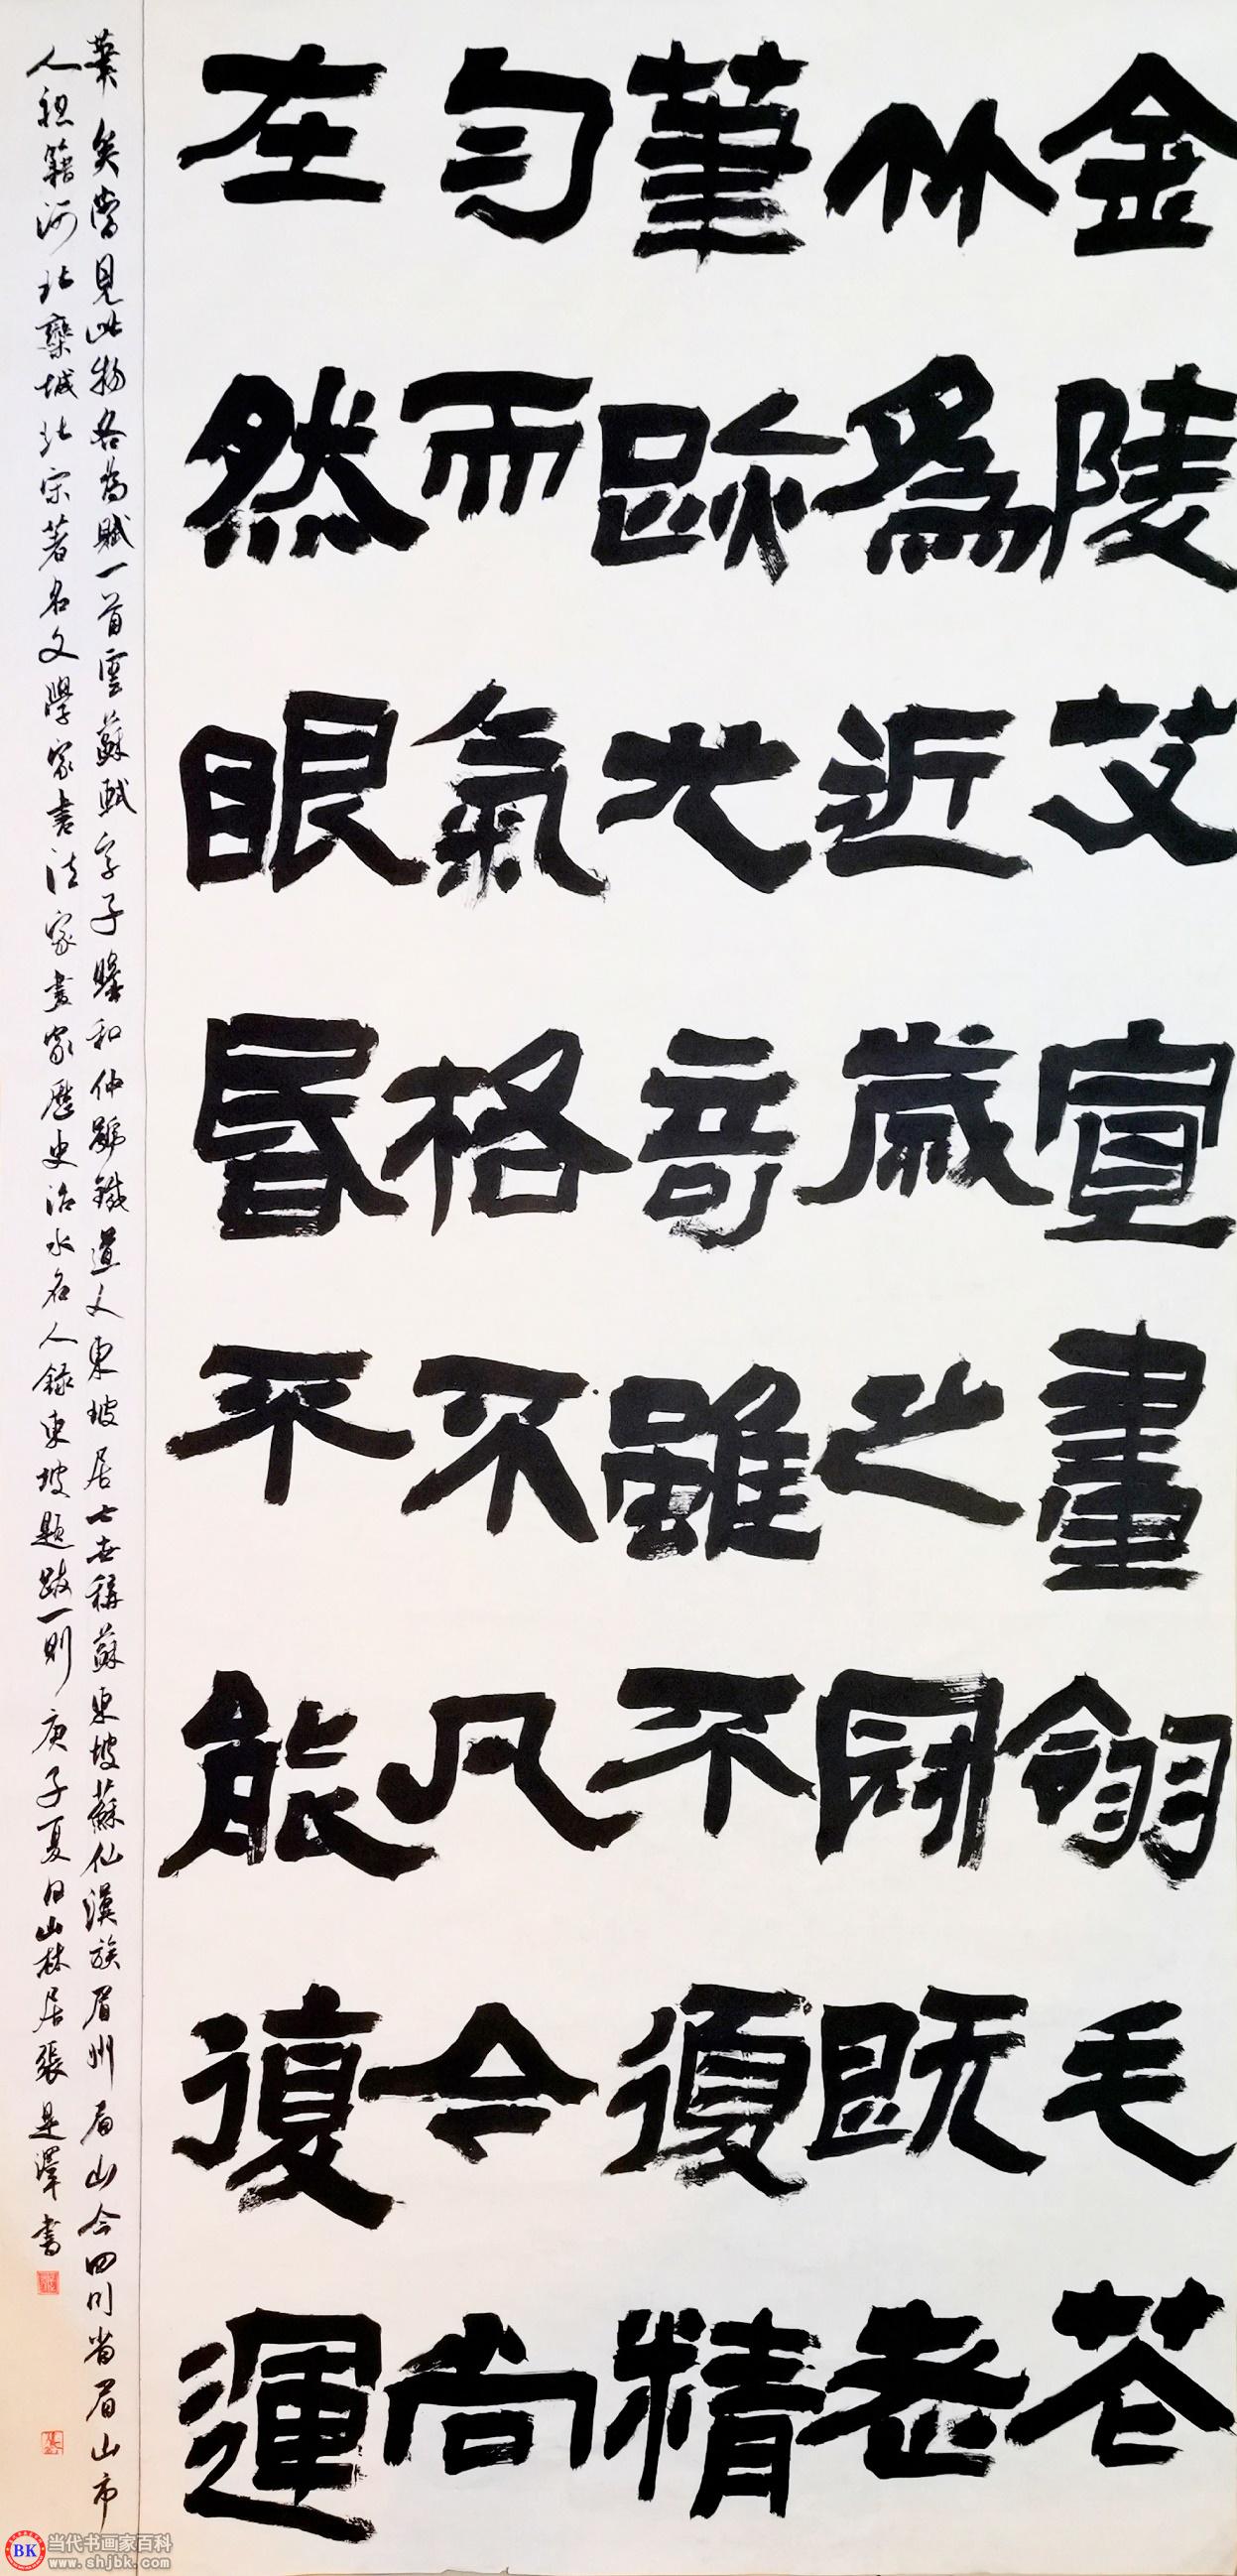 金陵艾宣畫翎毛花
竹為近歲之冠既老
筆跡尤奇雖不復精
勻而氣格不凡今尚
在然眼昏不能復運
筆矣嘗見此物各為賦一首云蘇軾字子瞻和仲號鐵道人東坡居士世稱蘇東坡蘇仙漢族眉州眉山今四川省眉山市
人祖籍河北欒城北宋著名文學家書法家畫家歷史治水名人錄東坡題跋一則庚子夏日山林居張是澤書
BK 当代书画家百科
www.shjbk.com